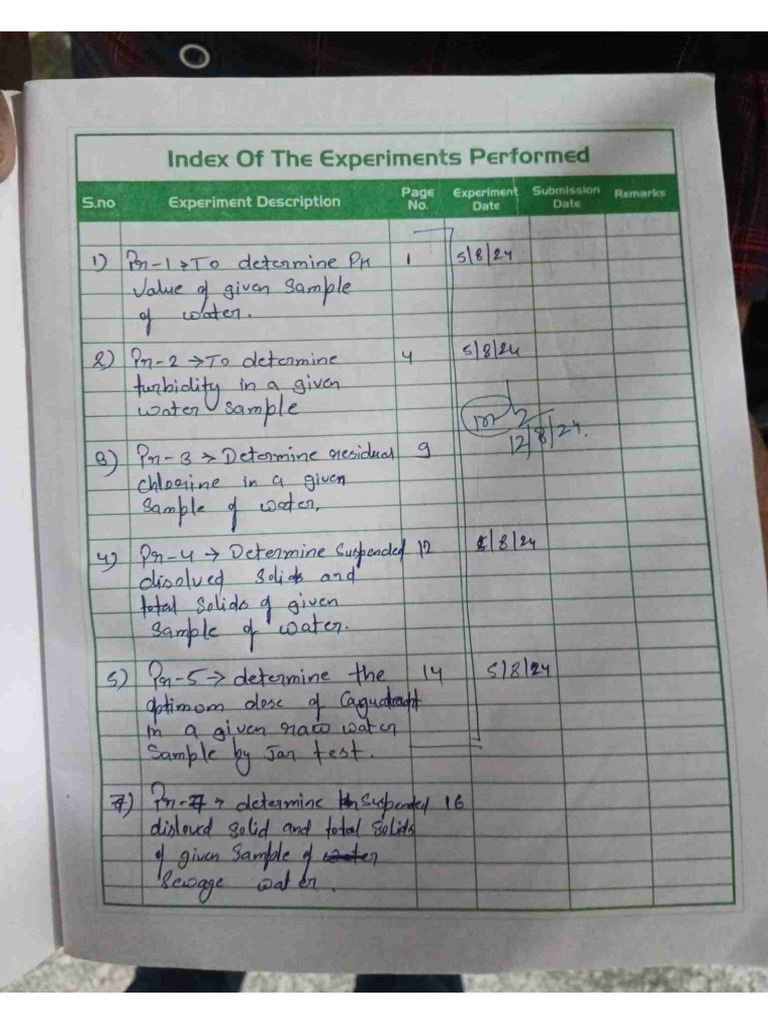 Index Of The Experiments Performed
S.no Experiment Description Page No. Experiment Date Submission Date Remarks
1) Pr-1 → To determine PH 1 5/8/24
value of given Sample
of water.
2) Pr-2 → To determine 4 5/8/24
turbidity in a given
water Sample
12/8/24.
3) Pr-3 → Determine residual 9
chlorine in a given
Sample of water,
4) Pr-4 → Determine Suspended 12 5/8/24
disolved Solids and
total Solids of given
Sample of water.
5) Pr-5 → determine the 14 5/8/24
optimom dose of
in a given raw water
Sample by Jar test.
7) Pr-7 → determine Suspended 16
disloved Solid and total Solids
of given Sample of water
Sewage water.